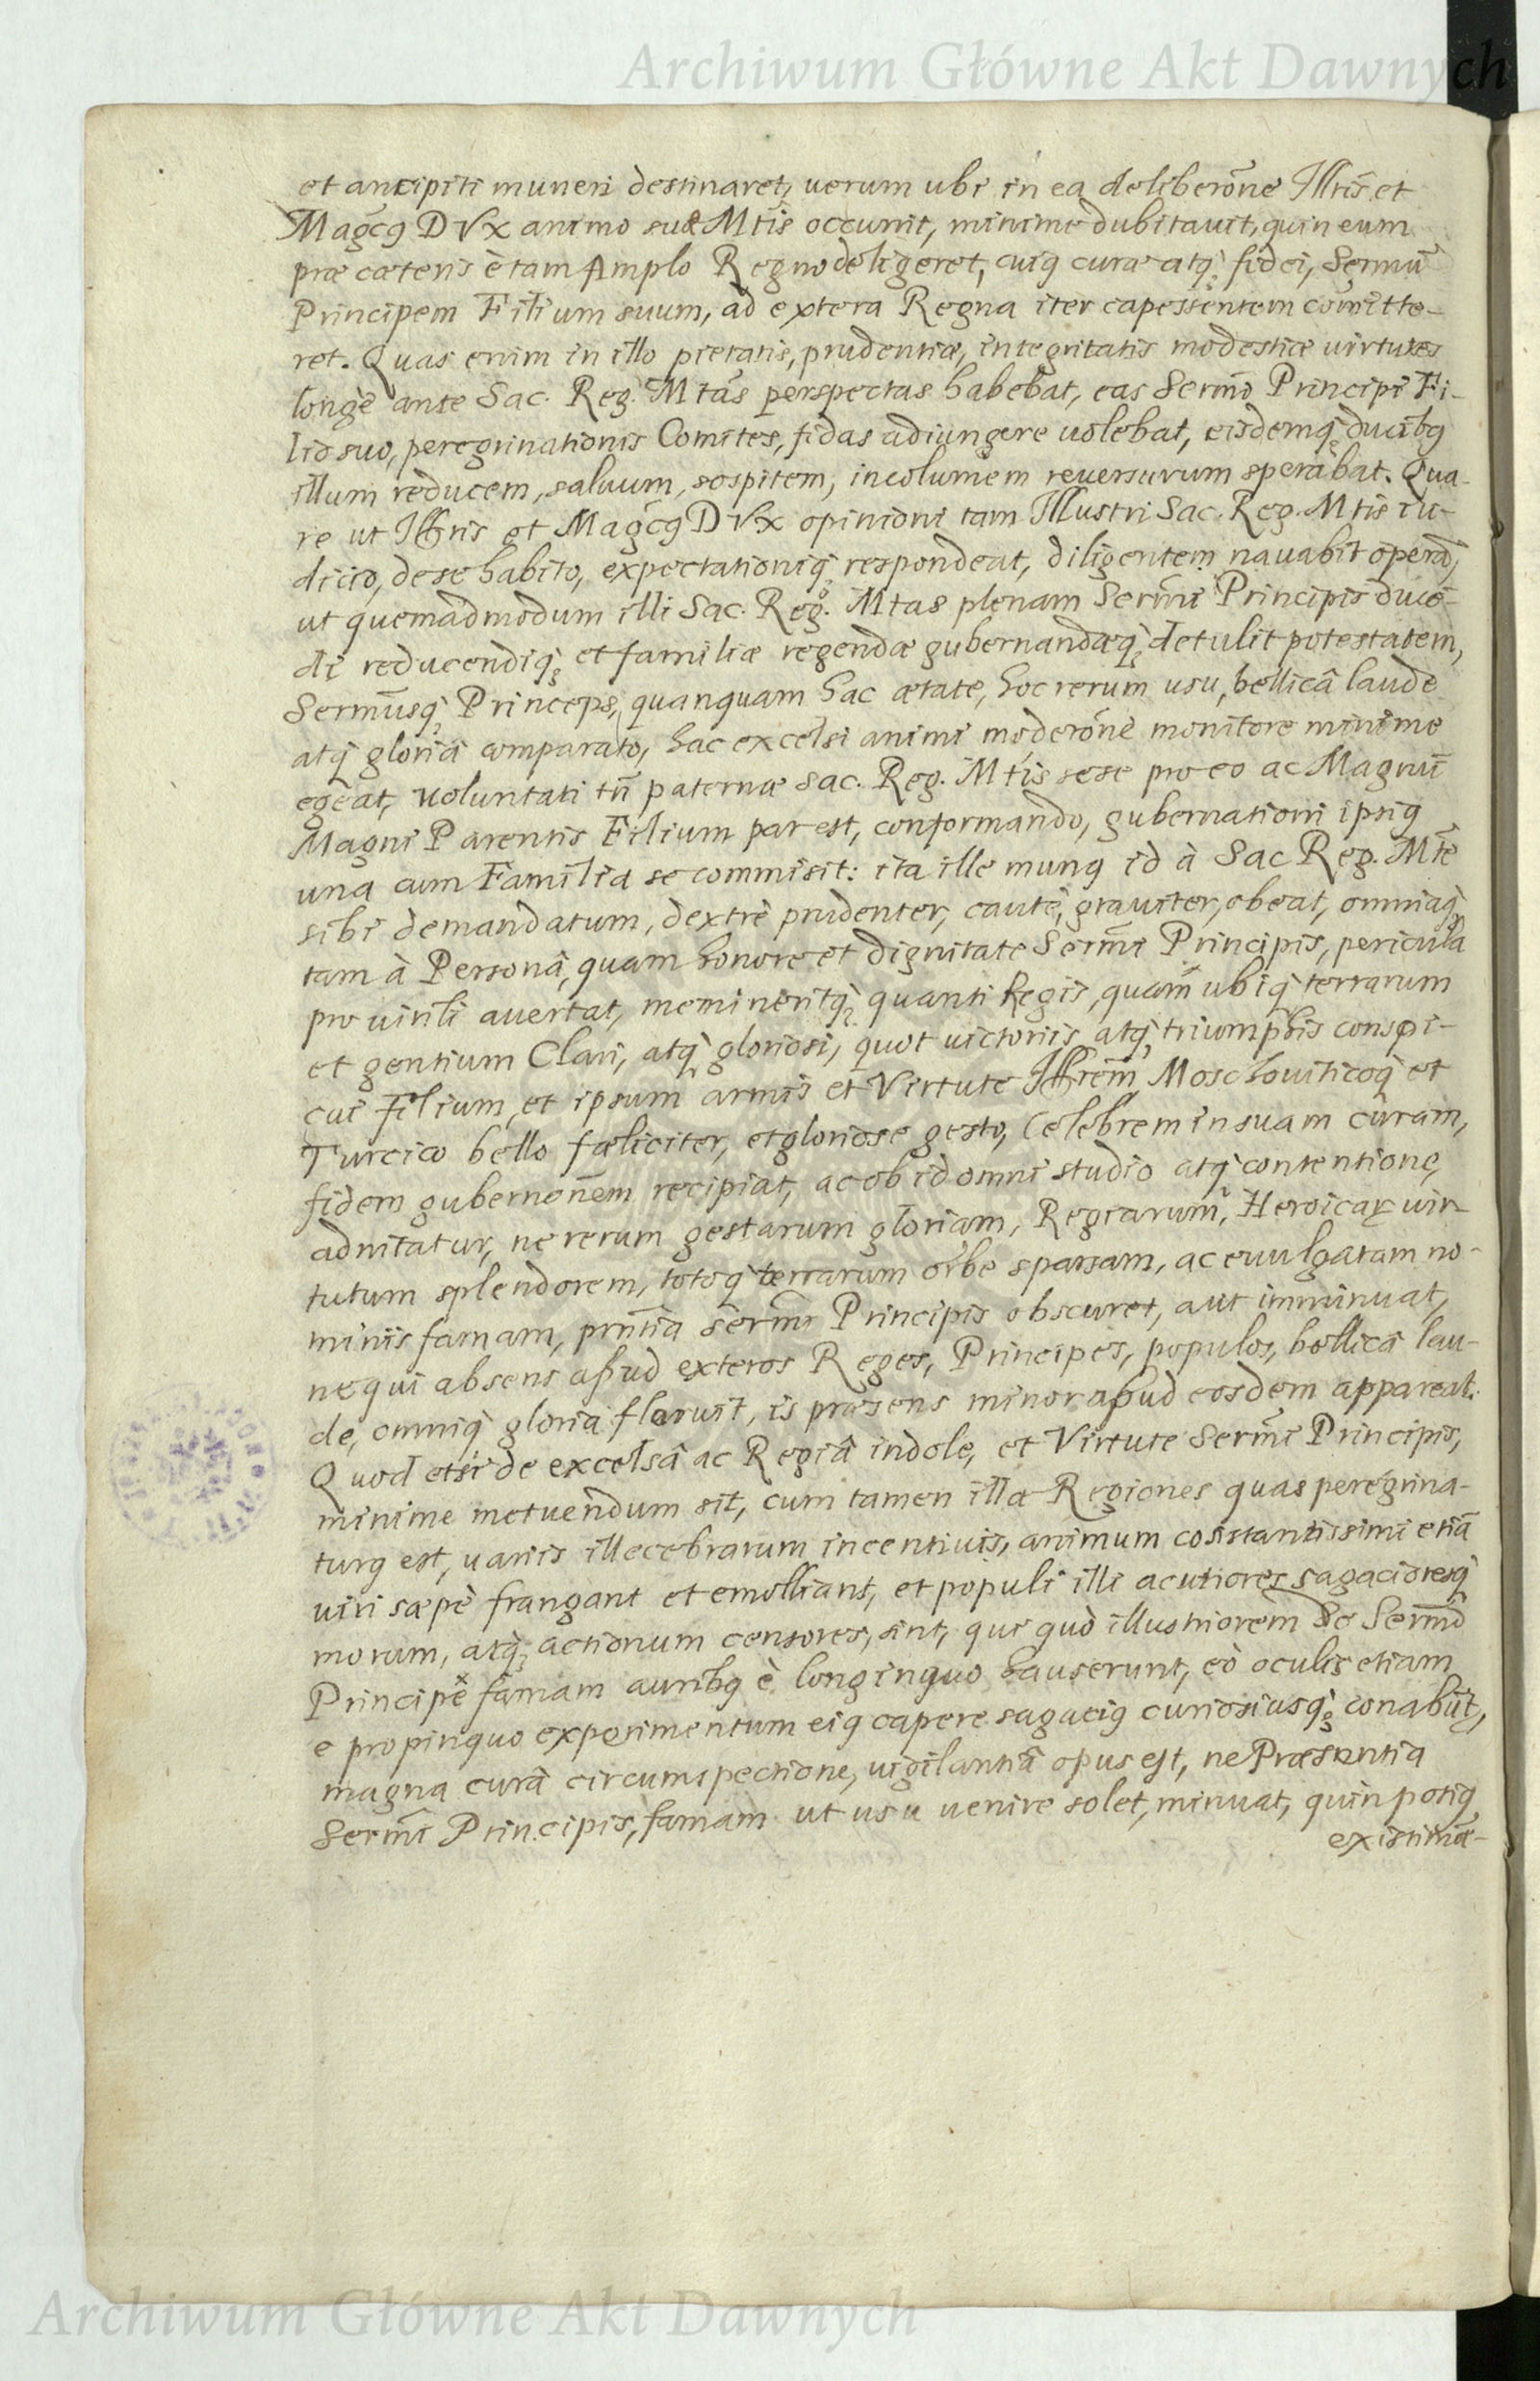 Archiwum Główne Akt Dawnych
et ancipiti muneri destinaret, uerum ubi in ea deliberōne Illris et
Magcꝯ DVx animo suæ Mtis occurrit, minime dubitauit, quin eum
præ cæteris è tam Amplo Regno deligeret, cuiꝯ curæ atq; fidei, Sermū
Principem Filium suum, ad extera Regna iter capessentem comitte-
ret. Quas enim in illo pietatis, prudentiæ, integritatis modestiæ uirtutes
longè ante Sac. Reg. Mtas perspectas habebat, eas Sermo Principi Fi-
lio suo, peregrinationis Comites, fidas adiungere uolebat, eisdemq; ducibꝯ
illum reducem, saluum, sospitem, incolumem reuersurum sperabat. Qua-
re ut Illris et Magcꝯ DVx opinioni tam Illustri Sac. Reg. Mtis iu-
dicio, de se habito, expectationiq; respondeat, diligentem nauabit operā,
ut quemadmodum illi Sac. Reg. Mtas plenam Sermi Principis ducē-
di reducendiq; et familiæ regendæ gubernandæq; detulit potestatem,
Sermusq; Princeps, quanquam hac ætate, hoc rerum usu, bellicâ laude
atq; gloriâ comparato, hac excelsi animi moderōne monitore minime
egeat, uoluntati tn̄ paternæ Sac. Reg. Mtis sese pro eo ac Magnū
Magni Parentis Filium par est, conformando, gubernationi ipsiꝯ
una cum Familia se commisit: ita ille munꝯ id à Sac Reg. Mte
sibi demandatum, dextrè prudenter, cautè, grauiter, obeat, omniaq;
tam à Personâ, quam honore et dignitate Sermi Principis, pericula
pro uirili auertat, memineritq; quanti Regis, quam ubiq; terrarum
et gentium Clari, atq; gloriosi, quot uictoriis atq; triumphis conspi-
cui Filium, et ipsum armis et Virtute Illrem Moschouiticoq; et
Turcico bello fæliciter, et gloriose gesto, Celebrem in suam curam,
fidem gubernōnem recipiat, ac ob id omni studio atq; contentione,
adnitatur, ne rerum gestarum gloriam, Regiarum, Heroicaꝝ uir-
tutum splendorem, totoq; terrarum orbe sparsam, ac euulgatam no-
minis famam, prntia Sermi Principis obscuret, aut imminuat,
ne qui absens apud exteros Reges, Principes, populos, bellicâ lau-
de, omniq; gloria floruit, is præsens minor apud eosdem appareat.
Quod etsi de excelsâ ac Regiâ indole, et Virtute Sermi Principis,
minime metuendum sit, cum tamen illæ Regiones quas peregrina-
turꝯ est, uariis illecebrarum incentiuis, animum constantissimi etiā
uiri sæpè frangant et emolliant, et populi illi acutiores sagacioresq;
morum, atq; actionum censores, sint, qui quò illustriorem de Sermo
Principe famam auribꝯ è longinquo hauserunt, eò oculis etiam
e propinquo experimentum eiꝯ capere sagaciꝯ curiosiusq; conabūt,
magna curâ circumspectione, uigilantiâ opus est, ne Præsentia
Sermi Principis, famam ut usu uenire solet, minuat, quin potiꝯ
existima-
Archiwum Główne Akt Dawnych